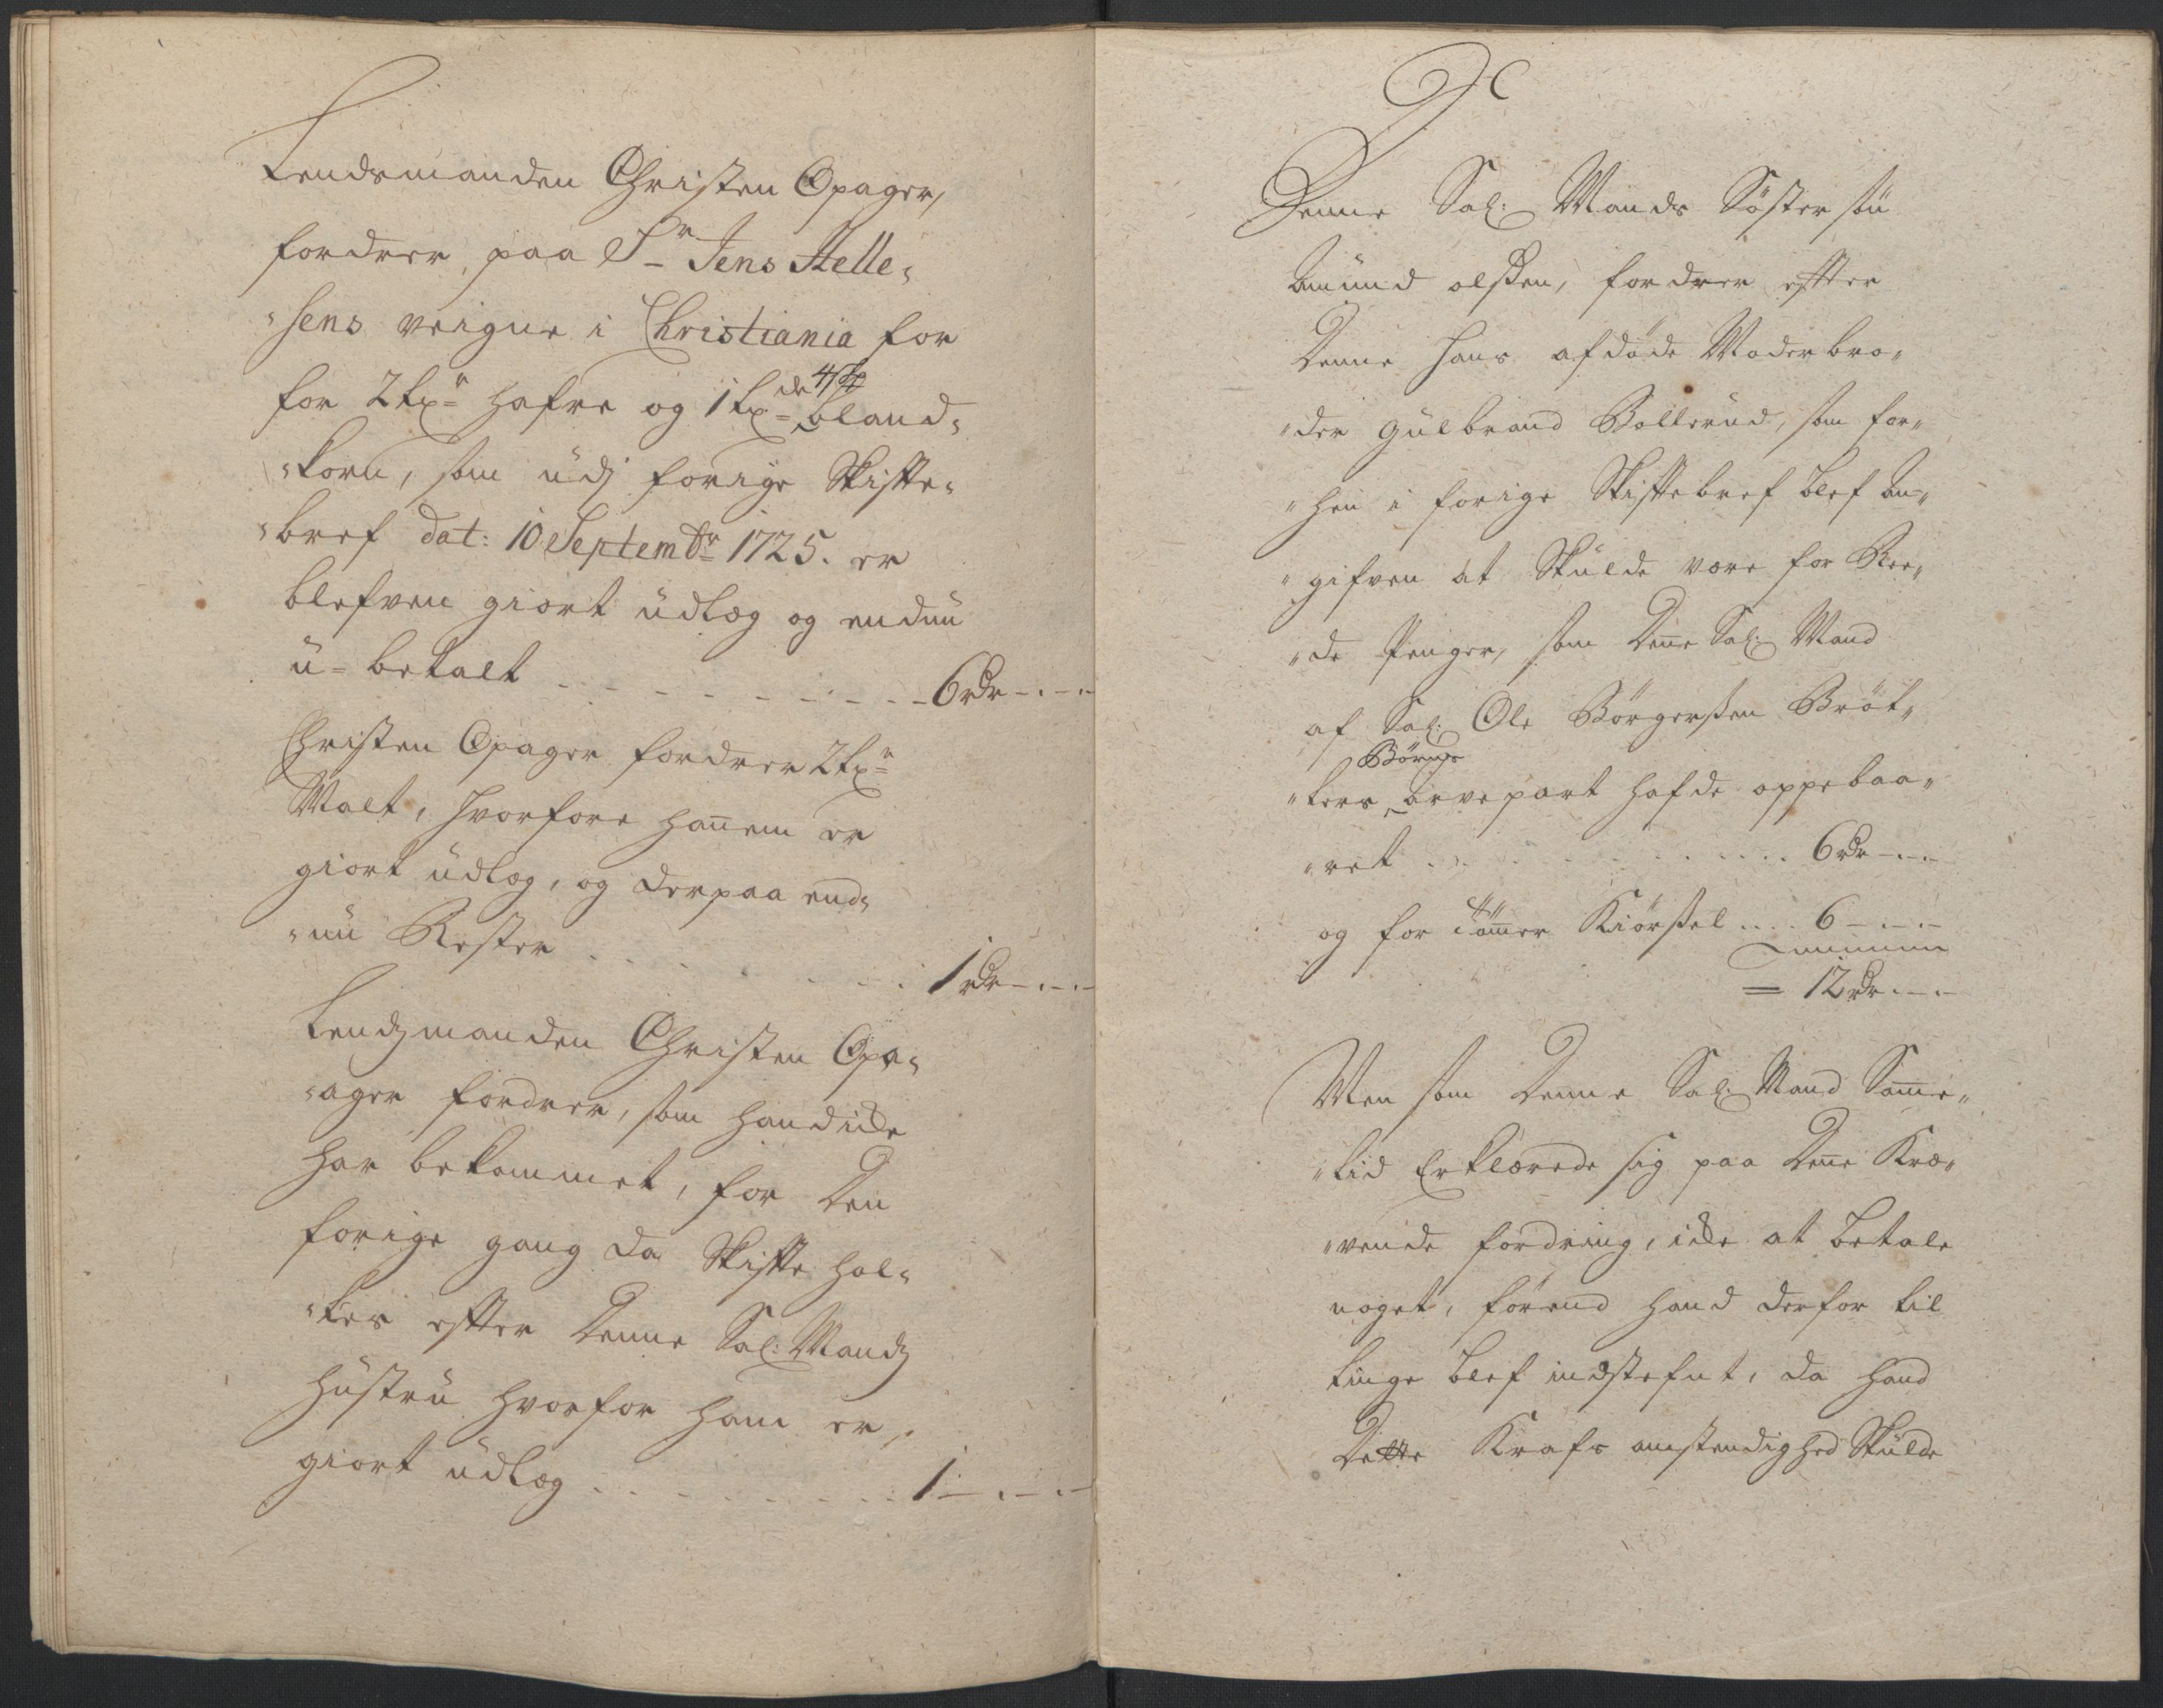 Lendsmanden Christen Opager,
fordrer, paa Sr Jens Stelle,
„sens veigne i Christiania for
for 2 txr hafre og 1 tx de 4 bland,
„korn, som udj forige Skifte„
„bref dat: 10 Septembr 1725. er
blefven giort udlæg og endnu
u-betalt - - - - - - - - 6rdr - . -
Christen Opager fordrer 2 txr
Malt, hvorfore hannem er
giort udlæg, og derpaa end„
„nu Rester . . . . . . . 1 rdr - . -
Lendzmanden Christen Opa„
„ager fordrer, som hand icke
har bekommet, for den
forige gang da Skifte hol„
„tes efter denne Sal: Mandz
hustru hvorfor ham er,
giort udlæg . . . . . . . . . 1 - . - . -
Denne Sal: Mands Søster søn
Amund olsen, fordrer efter
denne hans afdøde Moderbro„
„der Gulbrand Bollerud, som for„
„hen i forige Skiftebref blef An„
„gifven at Skulde være for Ree„
„de Penger, som denne Sal: Mand
af Sal: Ole Børgersen Brøt„
Børns
„ters arvepart hafde oppebaa„
„ret . . . . . . . . . . 6 rdr - . -
og for tømmer Kiørsel . . . . 6 - . - . -
= 12 rdr . - . -
Men som denne Sal: Mand Samme„
„tid Erklærede sig paa denne Kræ„
„vende fordring, icke at betale
noget, førend hand derfor til
tinge blef indstefnt, da hand
dette Krafs omstendighed Skulde